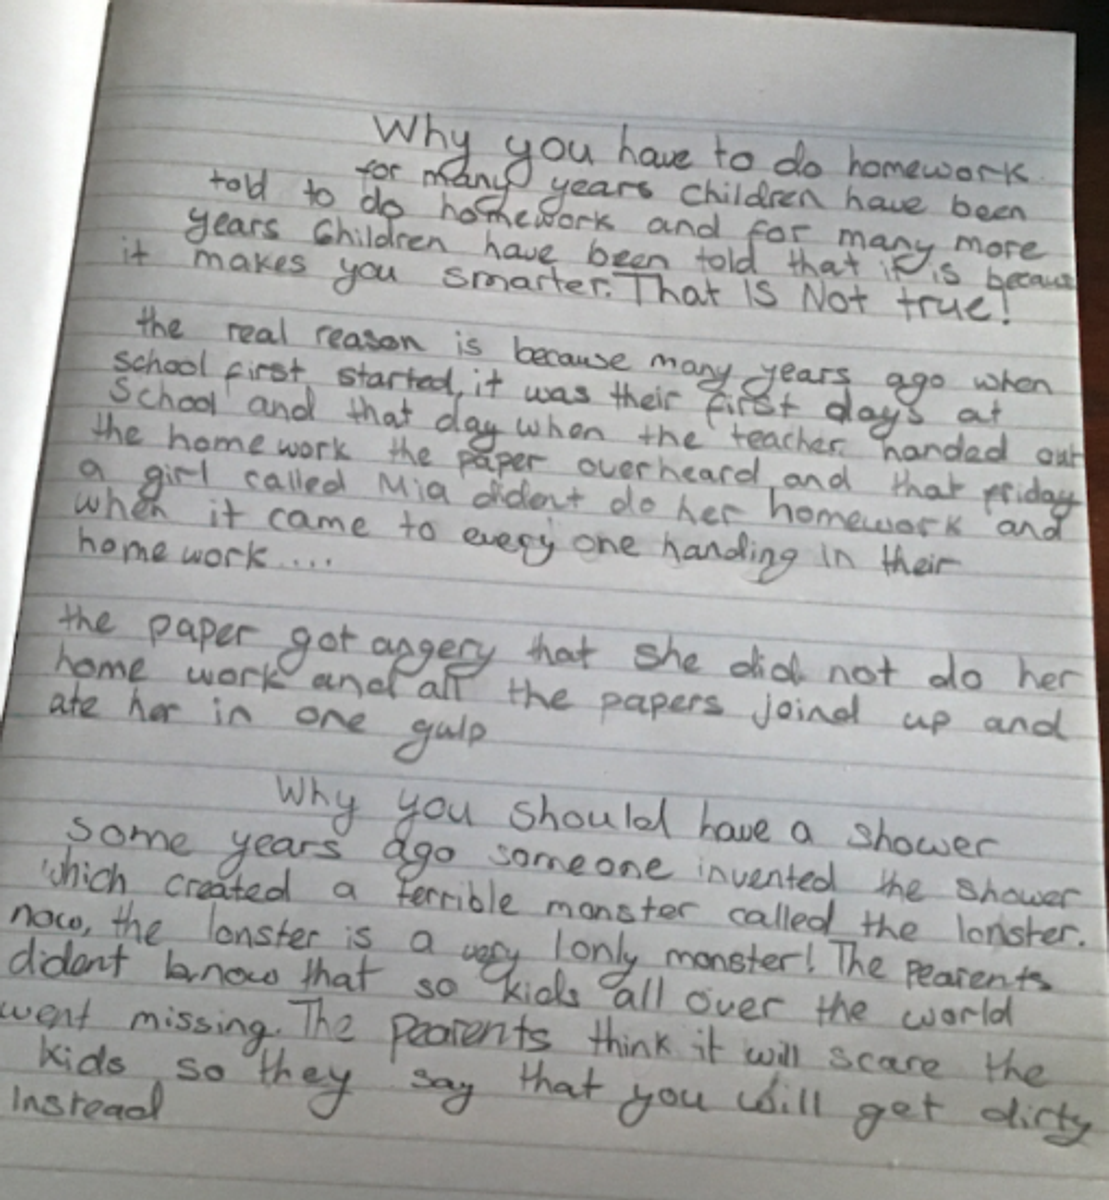 Why you have to do homework
for many years children have been
told to do homework and for many more
years Children have been told that it is because
it makes you smarter. That IS Not true!
the real reason is because many years ago when
school first started, it was their first days at
School and that day when the teacher handed out
the home work the paper overheard and that friday
a girl called Mia dident do her homework and
when it came to every one handing in their
home work ....
the paper got angery that she did not do her
home work and all the papers joind up and
ate her in one gulp
Why you should have a shower
some years ago someone invented the shower
which created a terrible monster called the lonster.
now, the lonster is a very lonly monster! The pearents
dident know that so kids all over the world
went missing. The pearents think it will scare the
kids so they say that you will get dirty
instead